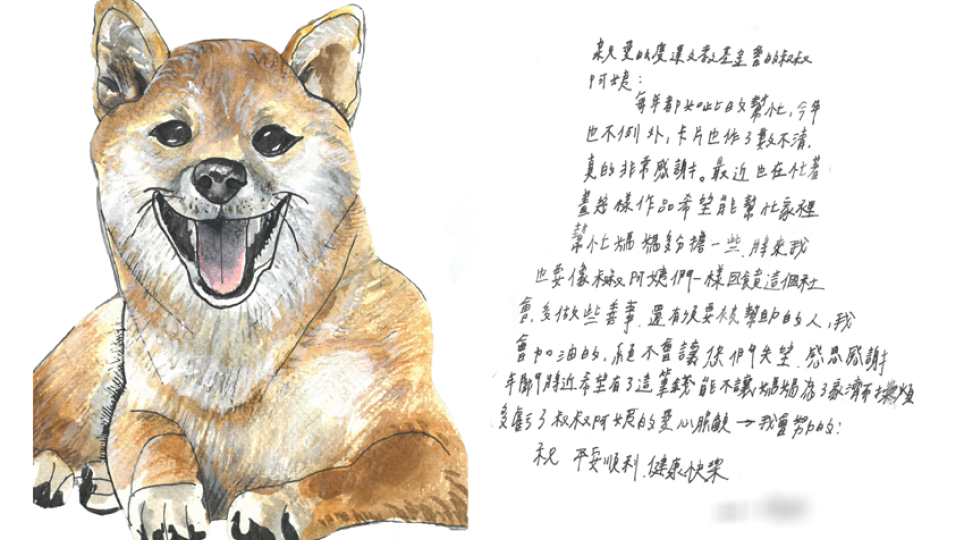 親愛的廣達文教基金會的叔叔
阿姨：
每年都如此的幫忙，今年
也不例外，卡片也作了數不清，
真的非常感謝。最近也在忙著
畫各樣作品希望能幫忙家裡
幫忙媽媽多分擔一些，將來我
也要像叔叔阿姨們一樣回饋這個社
會，多做些善事，還有須要被幫助的人，我
會加油的，絕不會讓您們失望，感恩感謝
年關將近希望有了這筆錢能不讓媽媽為了家濟而操煩
多虧了叔叔阿姨的愛心 我會努力的：
祝 平安順利，健康快樂